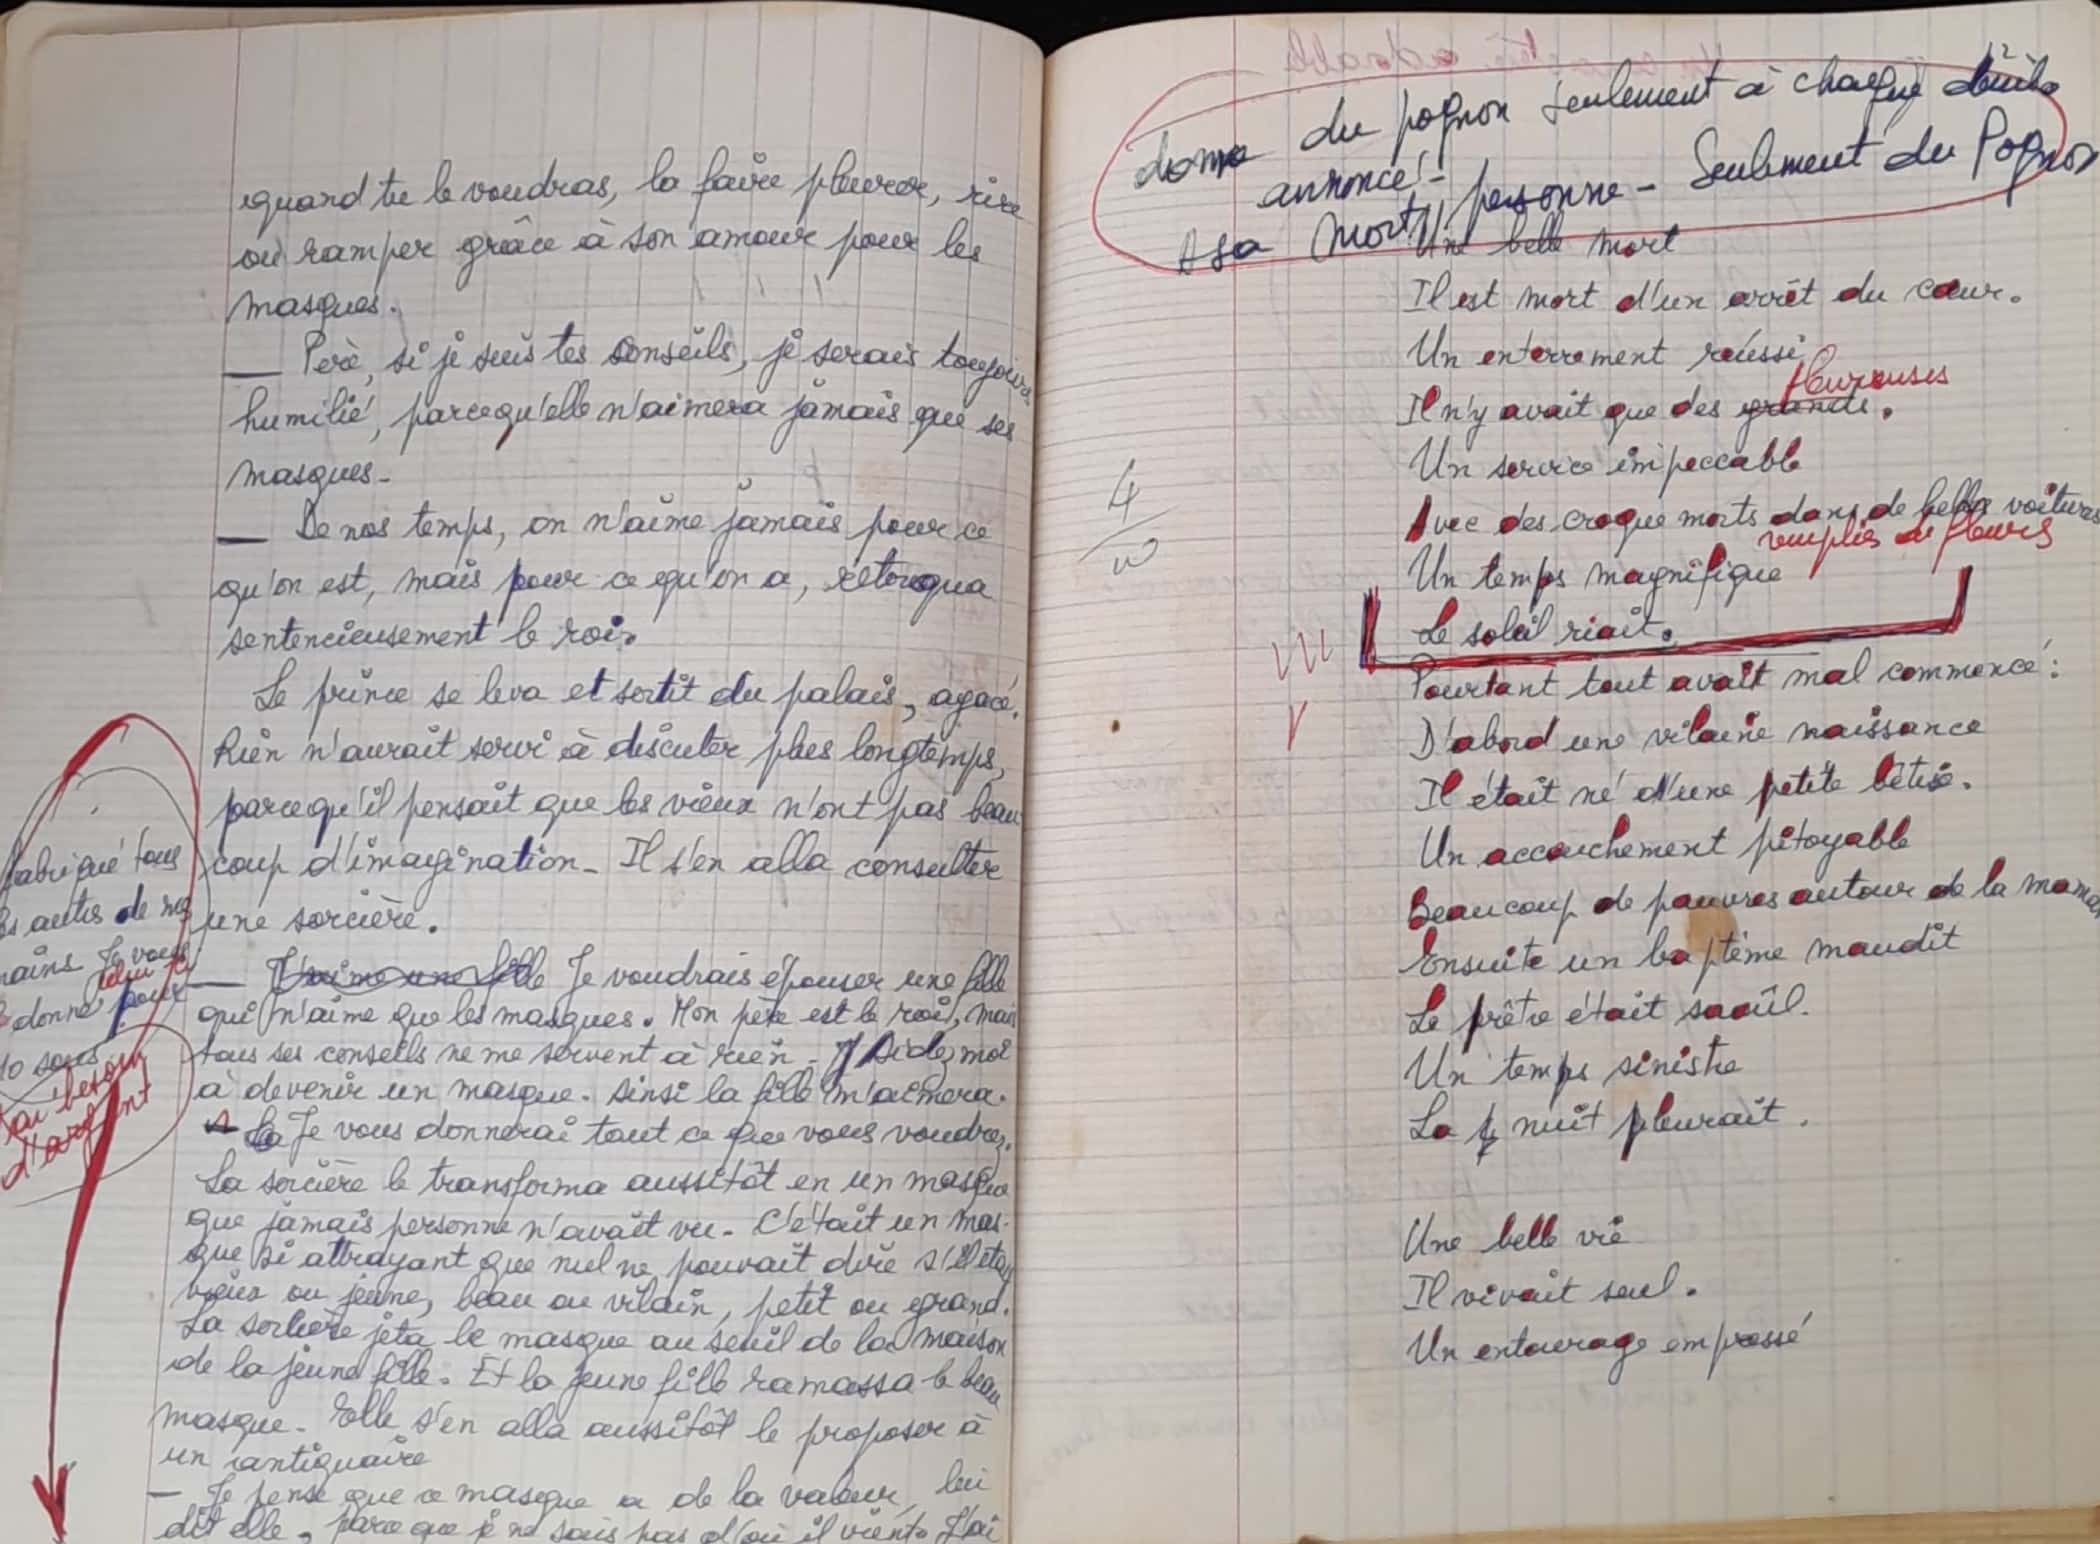 quand tu le voudras, la faire pleurer, rire
ou ramper grâce à son amour pour les
masques.
— Père, si je suis tes conseils, je serais toujours
humilié, parcequ'elle n'aimera jamais que ses
masques.
— De nos temps, on n'aime jamais pour ce
qu'on est, mais pour ce qu'on a, rétorqua
sentencieusement le roi.
Le prince se leva et sortit du palais, agacé.
Rien n'aurait servi à discuter plus longtemps,
parcequ'il pensait que les vieux n'ont pas beau
coup d'imagination. Il s'en alla consulter
une sorcière.
— J'aime une fille Je voudrais épouser une fille
qui n'aime que les masques. Mon père est le roi, mais
tous ses conseils ne me servent à rien. Aidez moi
à devenir un masque. Ainsi la fille m'aimera.
— Je vous donnerai tout ce que vous voudrez.
La sorcière le transforma aussitôt en un masque
que jamais personne n'avait vu. C'était un mas-
que si attrayant que nul ne pouvait dire s'il était
vieux ou jeune, beau ou vilain, petit ou grand.
La sorcière jeta le masque au seuil de la maison
de la jeune fille. Et la jeune fille ramassa le beau
masque. Elle s'en alla aussitôt le proposer à
un antiquaire
— Je pense que ce masque a de la valeur, lui
dit elle, parce que je ne sais pas d'où il vient. J'ai
fabriqué tous
les autres de mes
mains. Je vous
donne celui ci pour
10 sous
J'ai besoin
d'argent
du pognon seulement à chaque
donne
annoncé -
A sa mort, personne - Seulement du Pognon
Une belle mort
Il est mort d'un arrêt du cœur.
Un enterrement réussi
pleureuses
Il n'y avait que des grands.
Un service impeccable
Avec des croque morts dans de belles voitures
remplies de fleurs
Un temps magnifique
Le soleil riait.
Pourtant tout avait mal commencé :
D'abord une vilaine naissance
Il était né d'une petite bêtise.
Un accouchement pitoyable
Beaucoup de pauvres autour de la maman
Ensuite un baptême maudit
Le prêtre était saoûl.
Un temps sinistre
La nuit pleurait.
Une belle vie
Il vivait seul.
Un entourage empressé